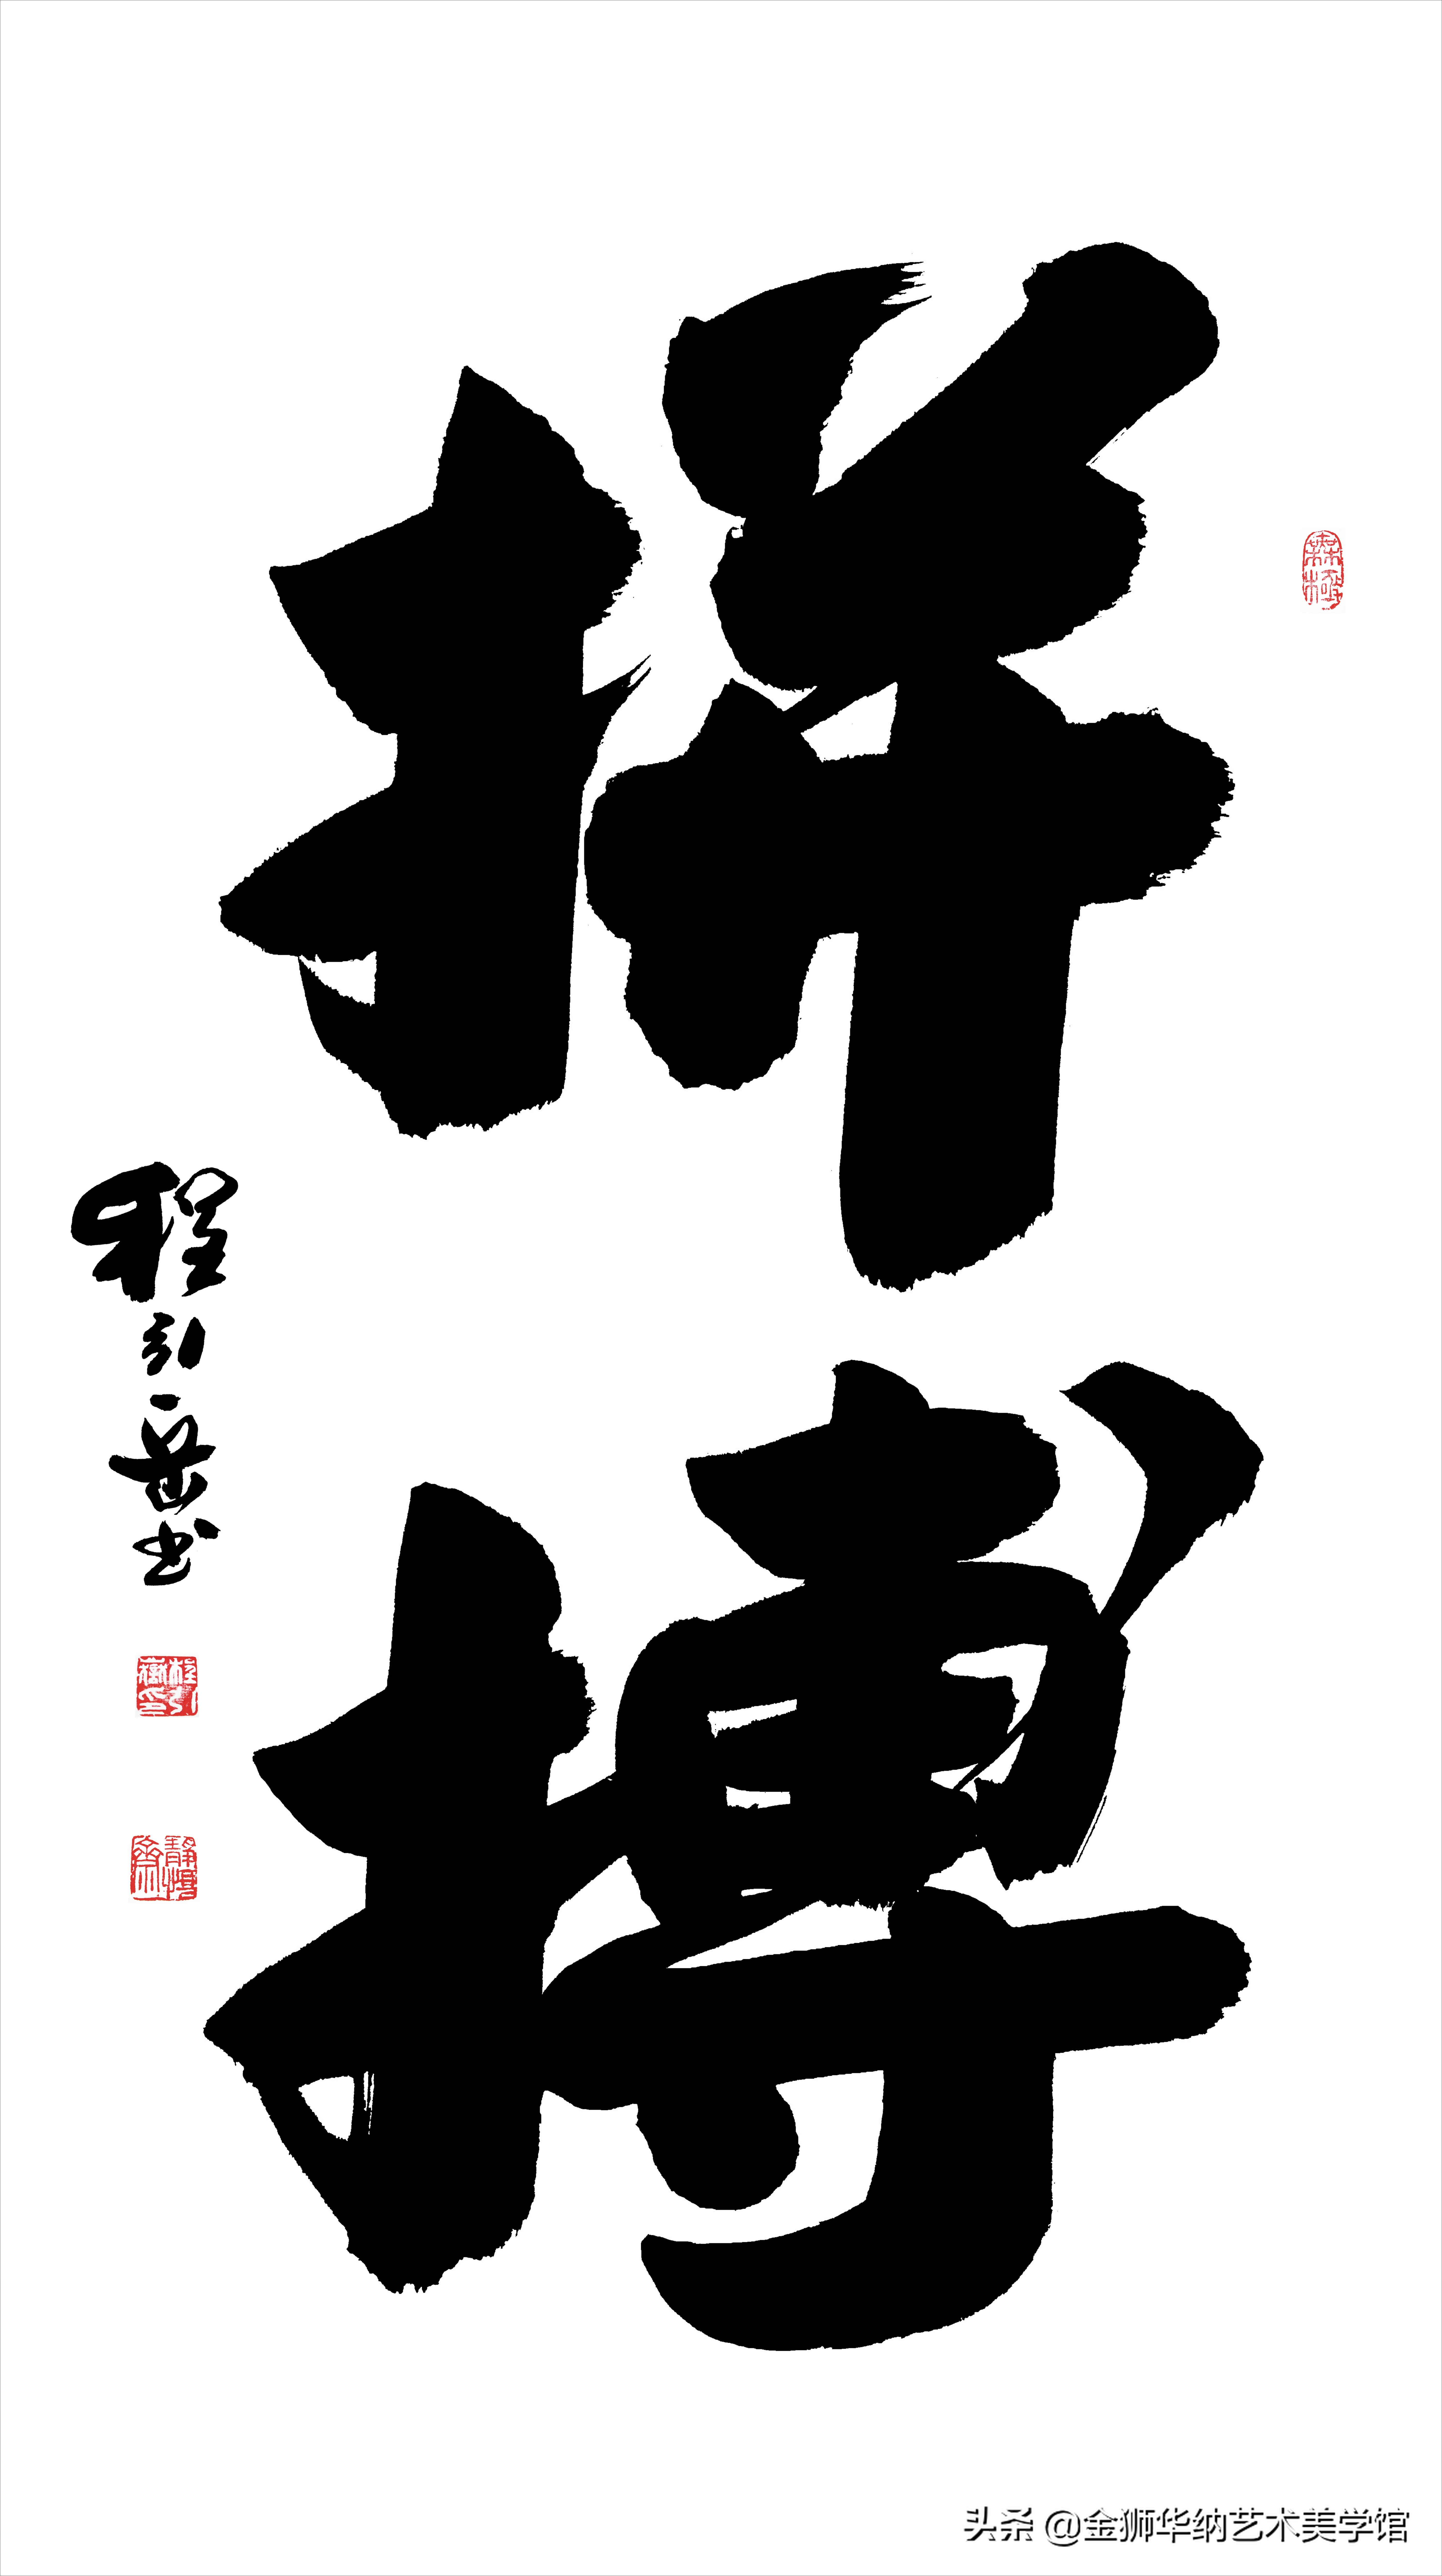 拼搏
程引岳书
头条 @金狮华纳艺术美学馆